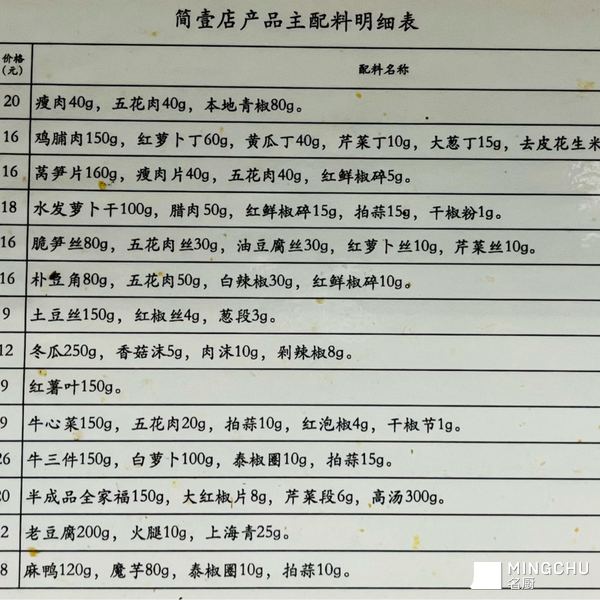 简壹店产品主配料明细表
价格
(元)
配料名称
20 瘦肉40g，五花肉40g，本地青椒80g。
16 鸡脯肉150g，红萝卜丁60g，黄瓜丁40g，芹菜丁10g，大葱丁15g，去皮花生米
16 莴笋片160g，瘦肉片40g，五花肉40g，红鲜椒碎5g。
18 水发萝卜干100g，腊肉50g，红鲜椒碎15g，拍蒜15g，干椒粉1g。
16 脆笋丝80g，五花肉丝30g，油豆腐丝30g，红萝卜丝10g，芹菜丝10g。
16 朴豆角80g，五花肉50g，白辣椒30g，红鲜椒碎10g。
9 土豆丝150g，红椒丝4g，葱段3g。
12 冬瓜250g，香菇沫5g，肉沫10g，剁辣椒8g。
9 红薯叶150g。
9 牛心菜150g，五花肉20g，拍蒜10g，红泡椒4g，干椒节1g。
26 牛三件150g，白萝卜100g，泰椒圈10g，拍蒜15g。
20 半成品全家福150g，大红椒片8g，芹菜段6g，高汤300g。
2 老豆腐200g，火腿10g，上海青25g。
8 麻鸭120g，魔芋80g，泰椒圈10g，拍蒜10g。
MINGCHU
名厨